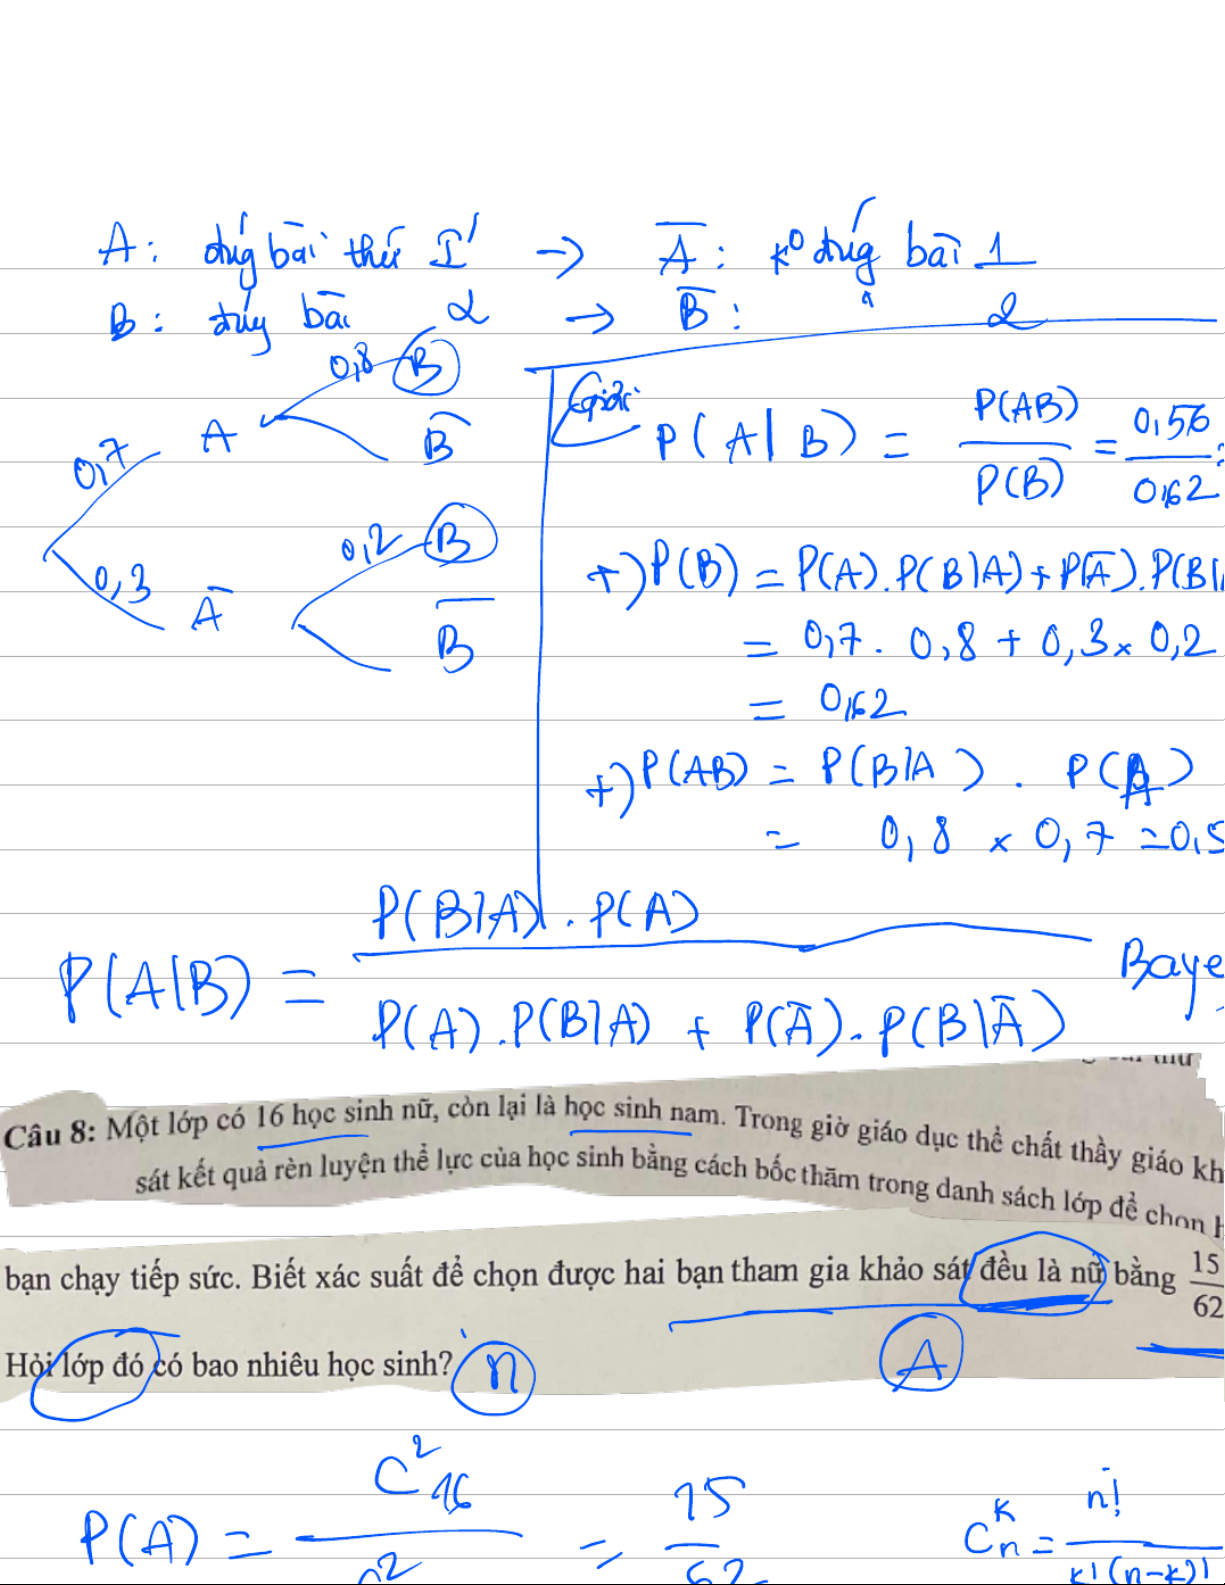 A: đúng bài thứ I → A̅: k⁰ đúng bài 1
B: đúng bài 2 → B̅: 2
0,8 B
A
B̅
0,7
0,2 B
0,3
A̅
B̅
Giải
P(A|B) = P(AB)/P(B) = 0,56/0,62
+) P(B) = P(A).P(B|A) + P(A̅).P(B|
= 0,7 . 0,8 + 0,3 x 0,2
= 0,62
+) P(AB) = P(B|A) . P(A)
= 0,8 x 0,7 = 0,5
P(A|B) = P(B|A) . P(A) / P(A).P(B|A) + P(A̅).P(B|A̅) Baye
Câu 8: Một lớp có 16 học sinh nữ, còn lại là học sinh nam. Trong giờ giáo dục thể chất thầy giáo kh
sát kết quả rèn luyện thể lực của học sinh bằng cách bốc thăm trong danh sách lớp để chọn
bạn chạy tiếp sức. Biết xác suất để chọn được hai bạn tham gia khảo sát đều là nữ bằng 15/62
Hỏi lớp đó có bao nhiêu học sinh? n A
P(A) = C²₁₆ / = 15/62 Cᵏₙ = n!/k!(n-k)!